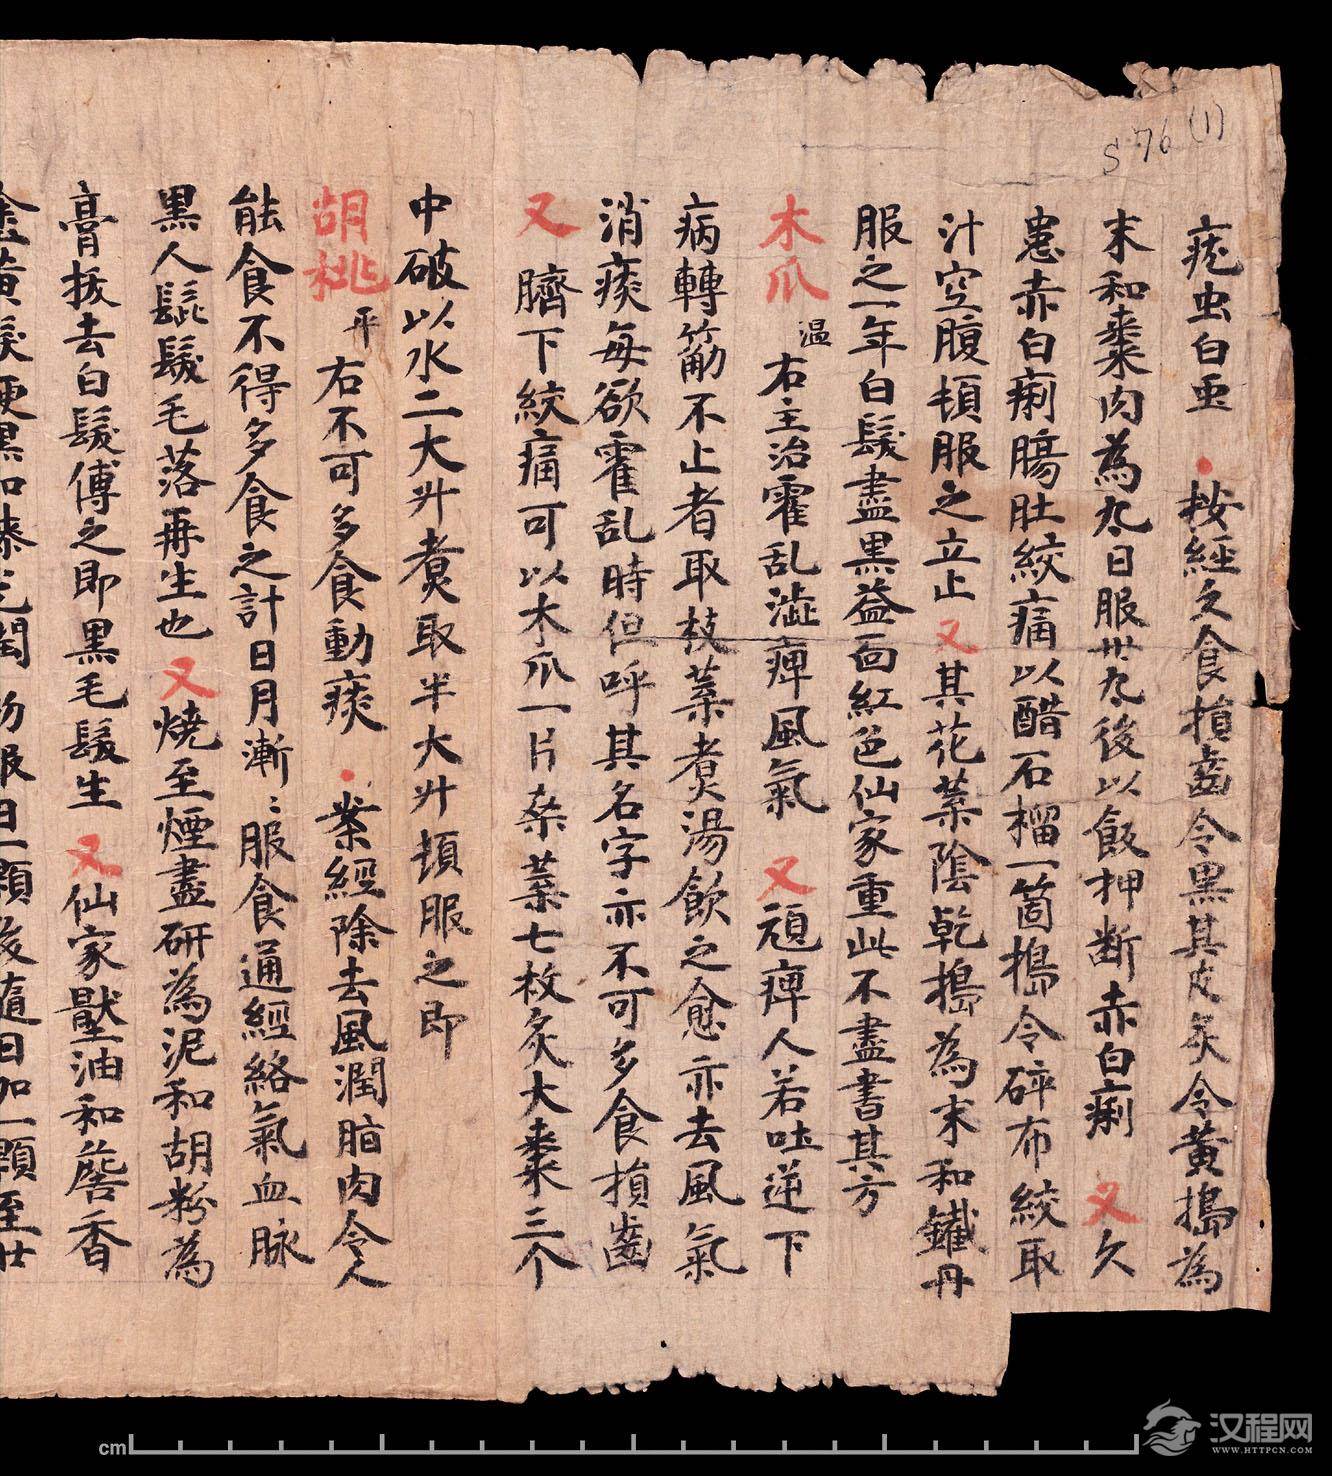 S 76 (1)
疣虫白虫 按經久食損齒令黑其皮炙令黄搗為
末和棗肉為丸日服卅丸後以飯押断赤白痢 又久
患赤白痢腸肚絞痛以醋石榴一箇搗令碎布絞取
汁空腹頓服之立止 又其花葉陰乾搗為末和鐵丹
服之一年白髮盡黑益面紅色仙家重此不盡書其方
木瓜 温 右主治霍乱澁痺風氣 又頑痺人若吐逆下
病轉筋不止者取枝葉煮湯飲之愈亦去風氣
消痰每欲霍乱時但呼其名字亦不可多食損齒
又 臍下絞痛可以木瓜一片桒葉七枚炙大棗三个
中破以水二大升煮取半大升頓服之即
胡桃 平 右不可多食動痰 案經除去風潤脂肉令人
能食不得多食之計日月漸〻服食通經絡氣血脉
黑人髭髮毛落再生也 又燒至煙盡研為泥和胡粉為
膏拔去白髮傅之即黑毛髮生 又仙家壓油和詹香
塗黄髮便黑如漆光潤 初服日一顆後隨日加一顆至廿
cm
汉程网
WWW.HTTPCN.COM